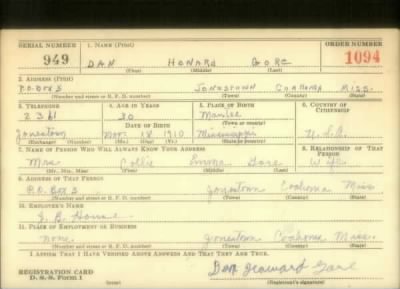 SERIAL NUMBER 1. NAME (Print) ORDER NUMBER
949 DAN HOWARD GORE 1094
(First) (Middle) (Last)
2. ADDRESS (Print)
P.O. BOX 3 JONESTOWN COAHOMA MISS.
(Number and street or R. F. D. number) (Town) (County) (State)
3. TELEPHONE 4. AGE IN YEARS 5. PLACE OF BIRTH 6. COUNTRY OF CITIZENSHIP
2361 30
(Town or county)
Jonestown Nov. 18 1910 Mississippi U.S.A.
(Exchange) (Number) (Mo.) (Day) (Yr.) (State or country)
7. NAME OF PERSON WHO WILL ALWAYS KNOW YOUR ADDRESS 8. RELATIONSHIP OF THAT PERSON
Mrs. Emma Gore Wife
(Mr., Mrs., Miss) (First) (Middle) (Last)
9. ADDRESS OF THAT PERSON
P.O. Box 3 Jonestown Coahoma Miss
(Number and street or R. F. D. number) (Town) (County) (State)
10. EMPLOYER'S NAME
11. PLACE OF EMPLOYMENT OR BUSINESS
none Jonestown Coahoma Miss.
(Number and street or R. F. D. number) (Town) (County) (State)
I AFFIRM THAT I HAVE VERIFIED ABOVE ANSWERS AND THAT THEY ARE TRUE.
Dan Howard Gore
REGISTRATION CARD
D. S. S. FORM 1 (over) (Registrant's signature)